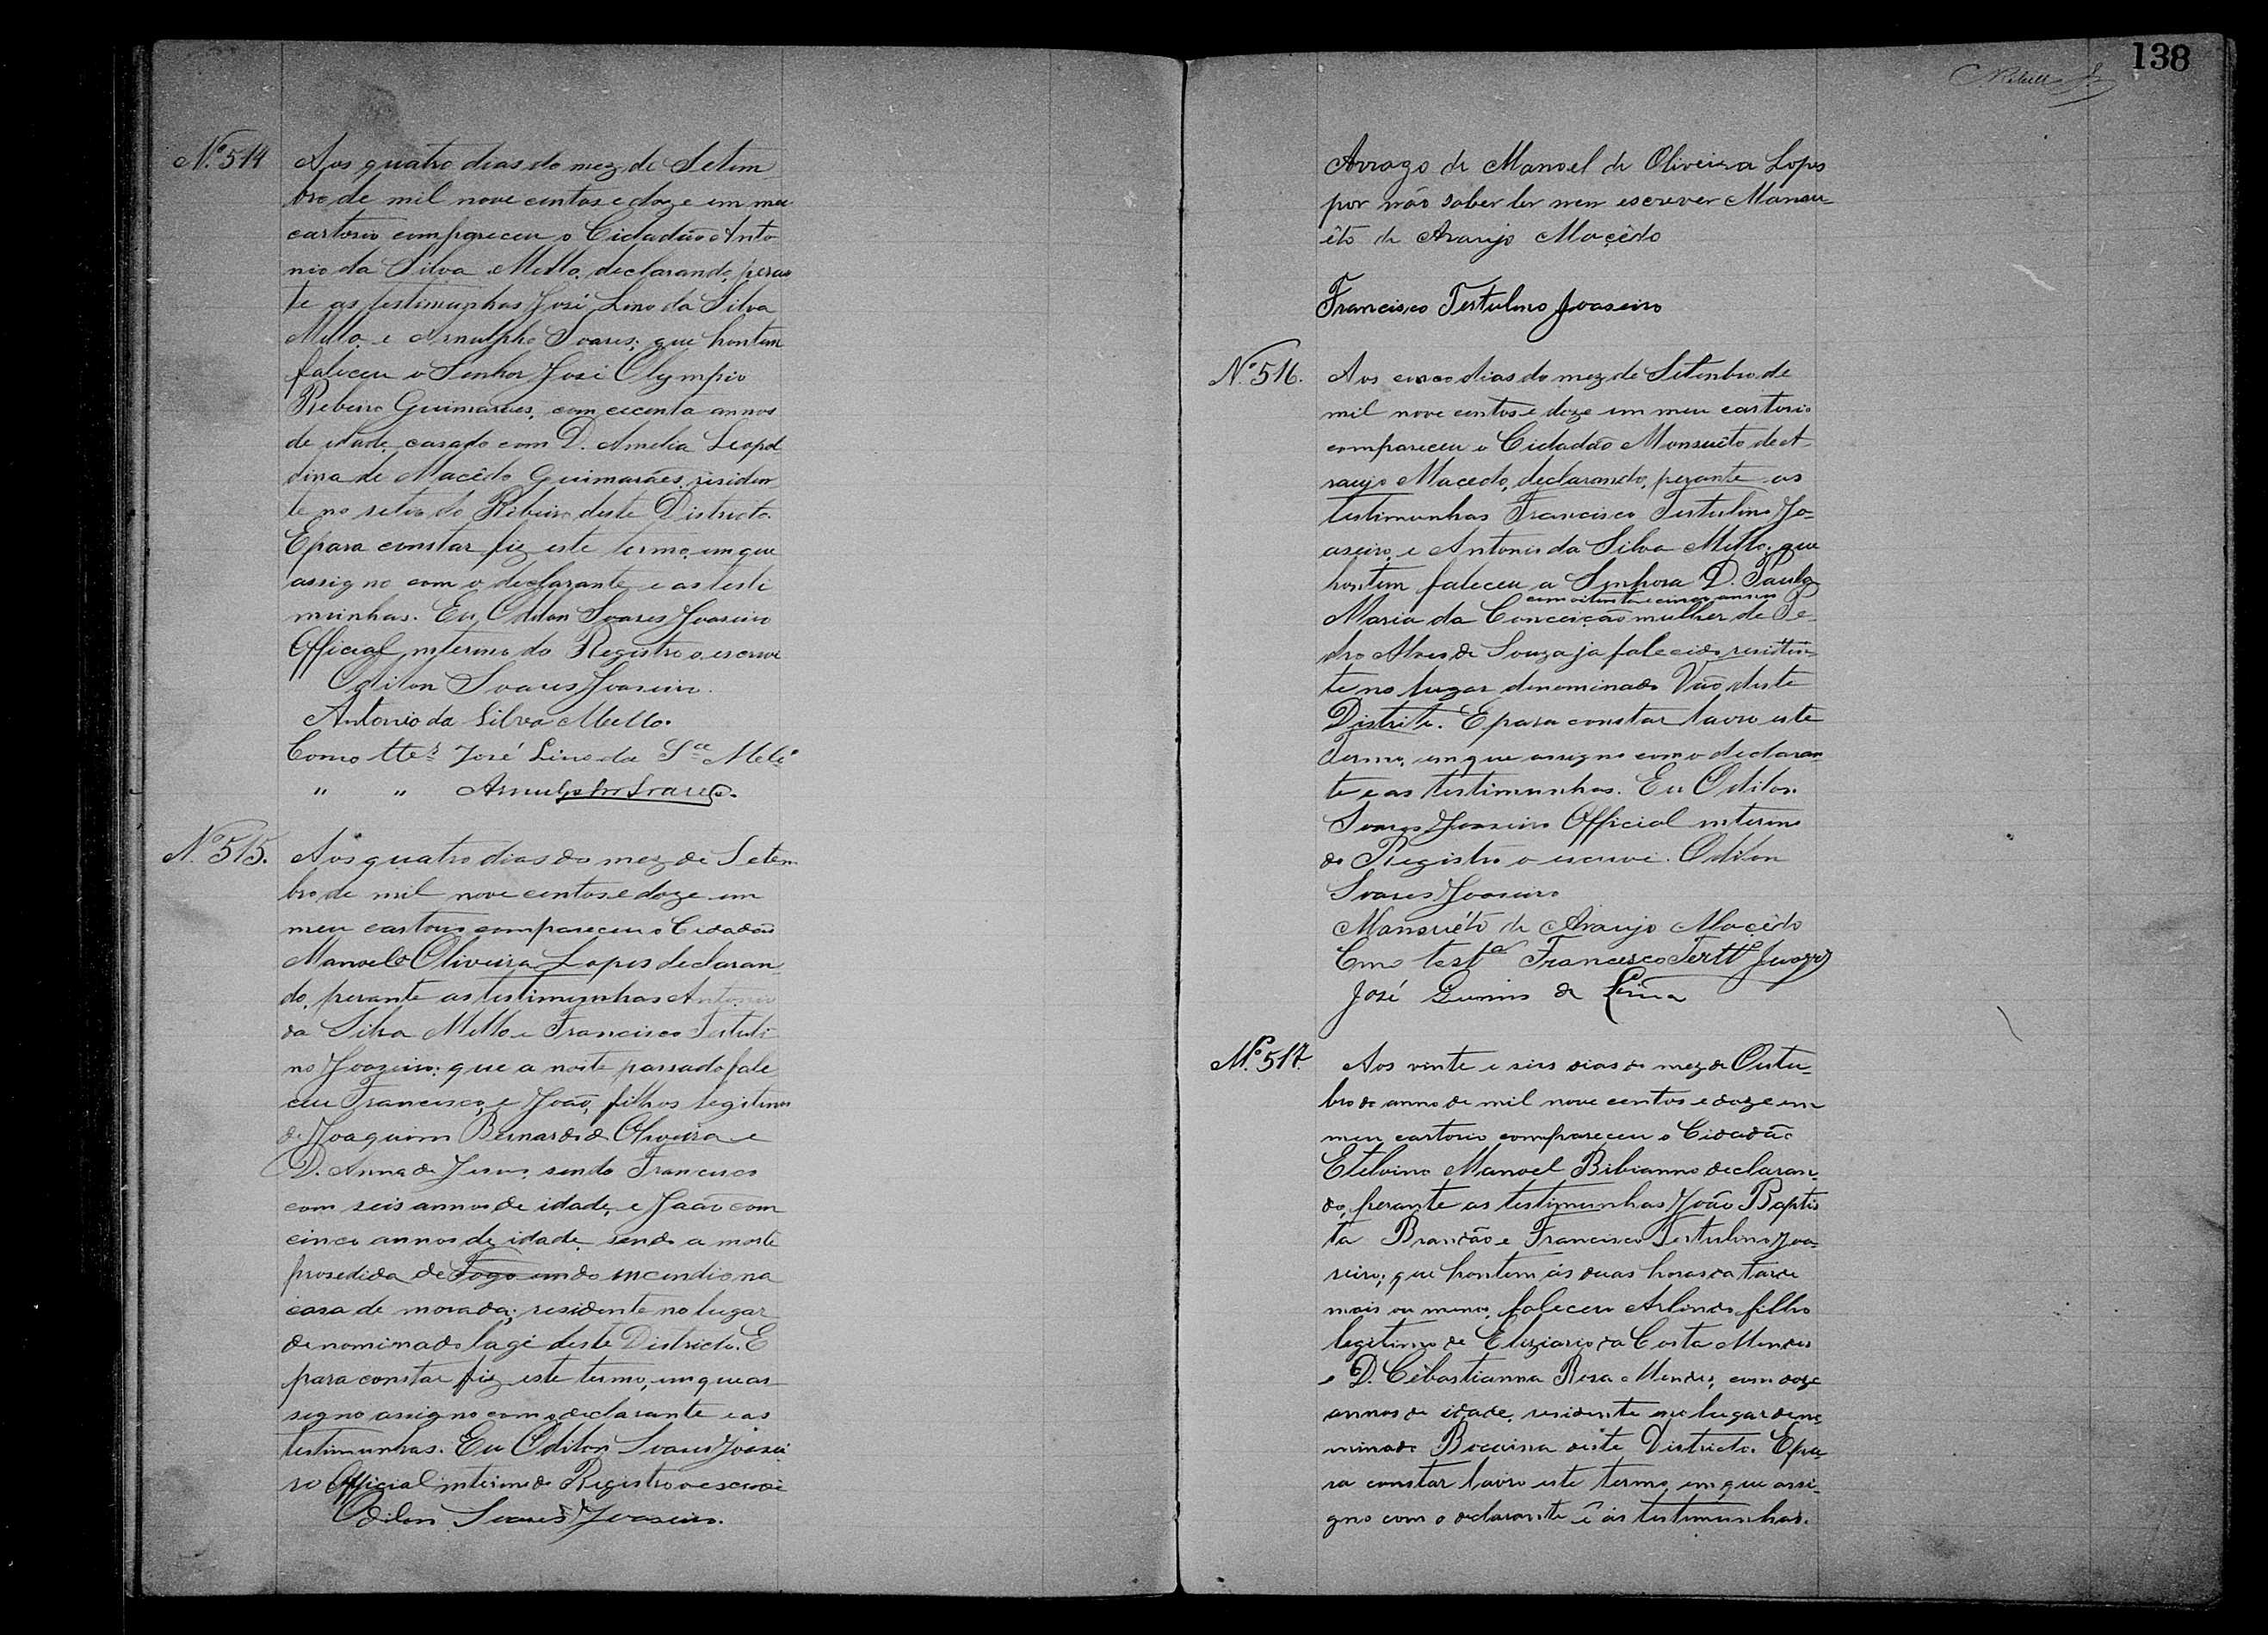 Nº 514 Aos quatro dias do mez de Setem
bro de mil nove centos e doze em meu
cartorio compareceu o Cidadão Anto
nio da Silva Mello, declarando, peran
te as testimunhas José Lino da Silva
Mello e Arnulpho Soares; que hontem
faleceu o Senhor José Olympio
Ribeiro Guimarães, com cecenta annos
de idade, casado com D. Amelia Leopol
dina de Macêdo Guimarães, residen
te no setio do Ribeiro deste Districto.
E para constar fiz este termo, em que
assigno com o declarante e as testi
munhas. Eu, Odilon Soares Joaseiro
Official interino do Registro o escrevi
Odilon Soares Joaseiro.
Antonio da Silva Mello.
Como ttes José Lino da Sª Mello
" " Arnulpho Soares.
Nº 515. Aos quatro dias do mez de Setem
bro de mil nove centos e doze em
meu cartorio compareceu o Cidadão
Manoel Oliveira Lopes declaran
do, perante as testimunhas Antonio
da Silva Mello e Francisco Tertuli
no Joazeiro: que a noite passada fale
ceu Francisco, e João, filhos legitimos
de Joaquim Bernardo de Oliveira e
D. Anna de Jesus, sendo Francisco
com seis annos de idade, e João com
cinco annos de idade, sendo a morte
prosedida de Fogo em do incendio na
casa de morada; residente no lugar
denominado lage deste Districto. E
para constar fiz este termo, em que as
signo assigno com o declarante e as
testimunhas. Eu Odilon Soares Joasei
ro Official interino do Registro o escrevi
Odilon Soares Joaseiro.
138
Arrogo de Manoel de Oliveira Lopes
por não saber ler nem escrever Mansu-
êto de Araujo Macêdo
Francisco Tertulino Joaseiro
Nº 516. Aos cinco dias do mez de Setenbro de
mil nove centos e doze em meu cartorio
compareceu o Cidadão Monsuêto de A-
raujo Macedo, declarando, perante as
testimunhas Francisco Tertulino Jo-
aseiro, e Antonio da Silva Mello; que
hontem faleceu a Senhora D. Paula
com oitenta e cinco annos
Maria da Conceição mulher de Pe-
dro Alves de Souza ja falecido residen-
te no lugar denominado Vão deste
Distrito. E para constar lavro este
termo, em que assigno com o declaran
te e as testimunhas. Eu Odilon
Soares Joaseiro Official interino
do Registro o escrevi. Odilon
Soares Joaseiro
Mansuêto de Araujo Macêdo
Como testª Francisco Terttº
José Gumis de Lima
Nº 517. Aos vinte e seis dias do mez de Outu-
bro do anno de mil nove centos e doze em
meu cartorio compareceu o Cidadão
Etelvino Manoel Bibianno declaran-
do, perante as testimunhas João Baptis
ta Brandão e Francisco Tertulino Joa-
seiro; que hontem ás duas horas da tarde
mais ou menos, faleceu Arlindo filho
legitimo de Eluziario da Costa Mendes
e D. Cêbastianna Rosa Mendes, com doze
annos de idade, residente no lugar deno
minado Bocaina deste Districto. E pa-
ra constar lavro este termo, em que assi-
gno com o declarante e as testimunhas.